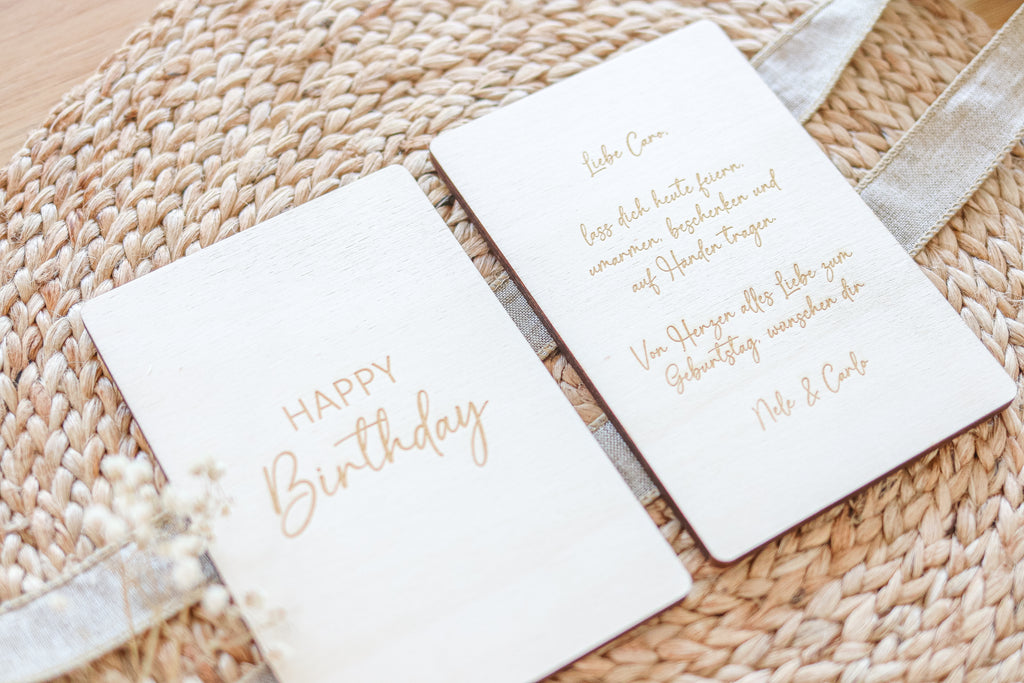 HAPPY
Birthday
Liebe Caro,
lass dich heute feiern,
umarmen, beschenken und
auf Händen tragen.
Von Herzen alles Liebe zum
Geburtstag, wünschen dir
Nele & Carlo